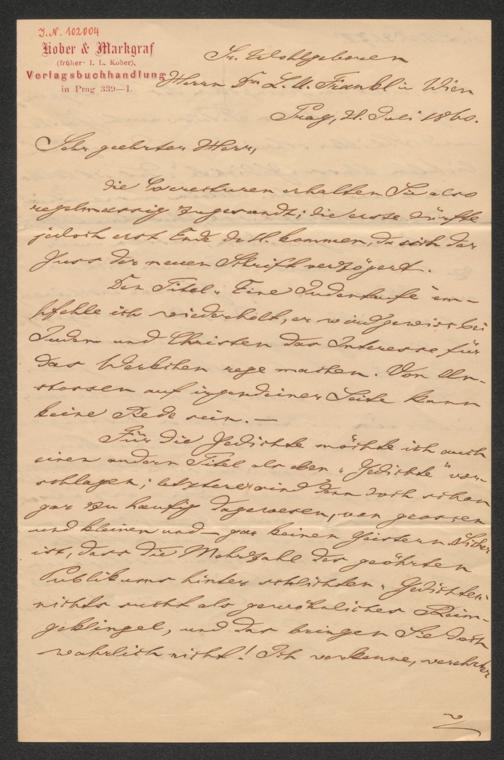 I.N. 102004
Kober & Markgraf
(früher: I. L. Kober),
Verlagsbuchhandlung
in Prag 339—I.
Sr. Wohlgeboren
Herrn Dr. L. A. Frankl in Wien
Prag, 21. Juli 1860.
Sehr geehrter Herr,
die Correcturen erhalten Sie also
regelmässig zugesandt; die erste dürfte
jedoch erst Ende d. M. kommen, da sich der
Guss der neuen Schrift verzögert.
Den Titel „Eine Judentaufe" em-
pfehle ich wiederholt, er wird gewiss bei
Juden und Christen das Interesse für
das Werkchen rege machen. Von An-
stossen auf irgend einer Seite kann
keine Rede sein. —
Für die Gedichte möchte ich auch
einen andern Titel als eben „Gedichte" vor-
schlagen; letzterer wird denn doch schon
gar zu häufig dagewesen, von grossen
und kleinen und – gar keinen Geistern. Sicher
ist, dass die Mehrzahl des geehrten
Publikums hinter schlichten „Gedichten"
nichts sucht als gewöhnliches Reim-
geklingel, und das bringen Sie doch
wahrlich nicht! Ich verkenne, verehrter